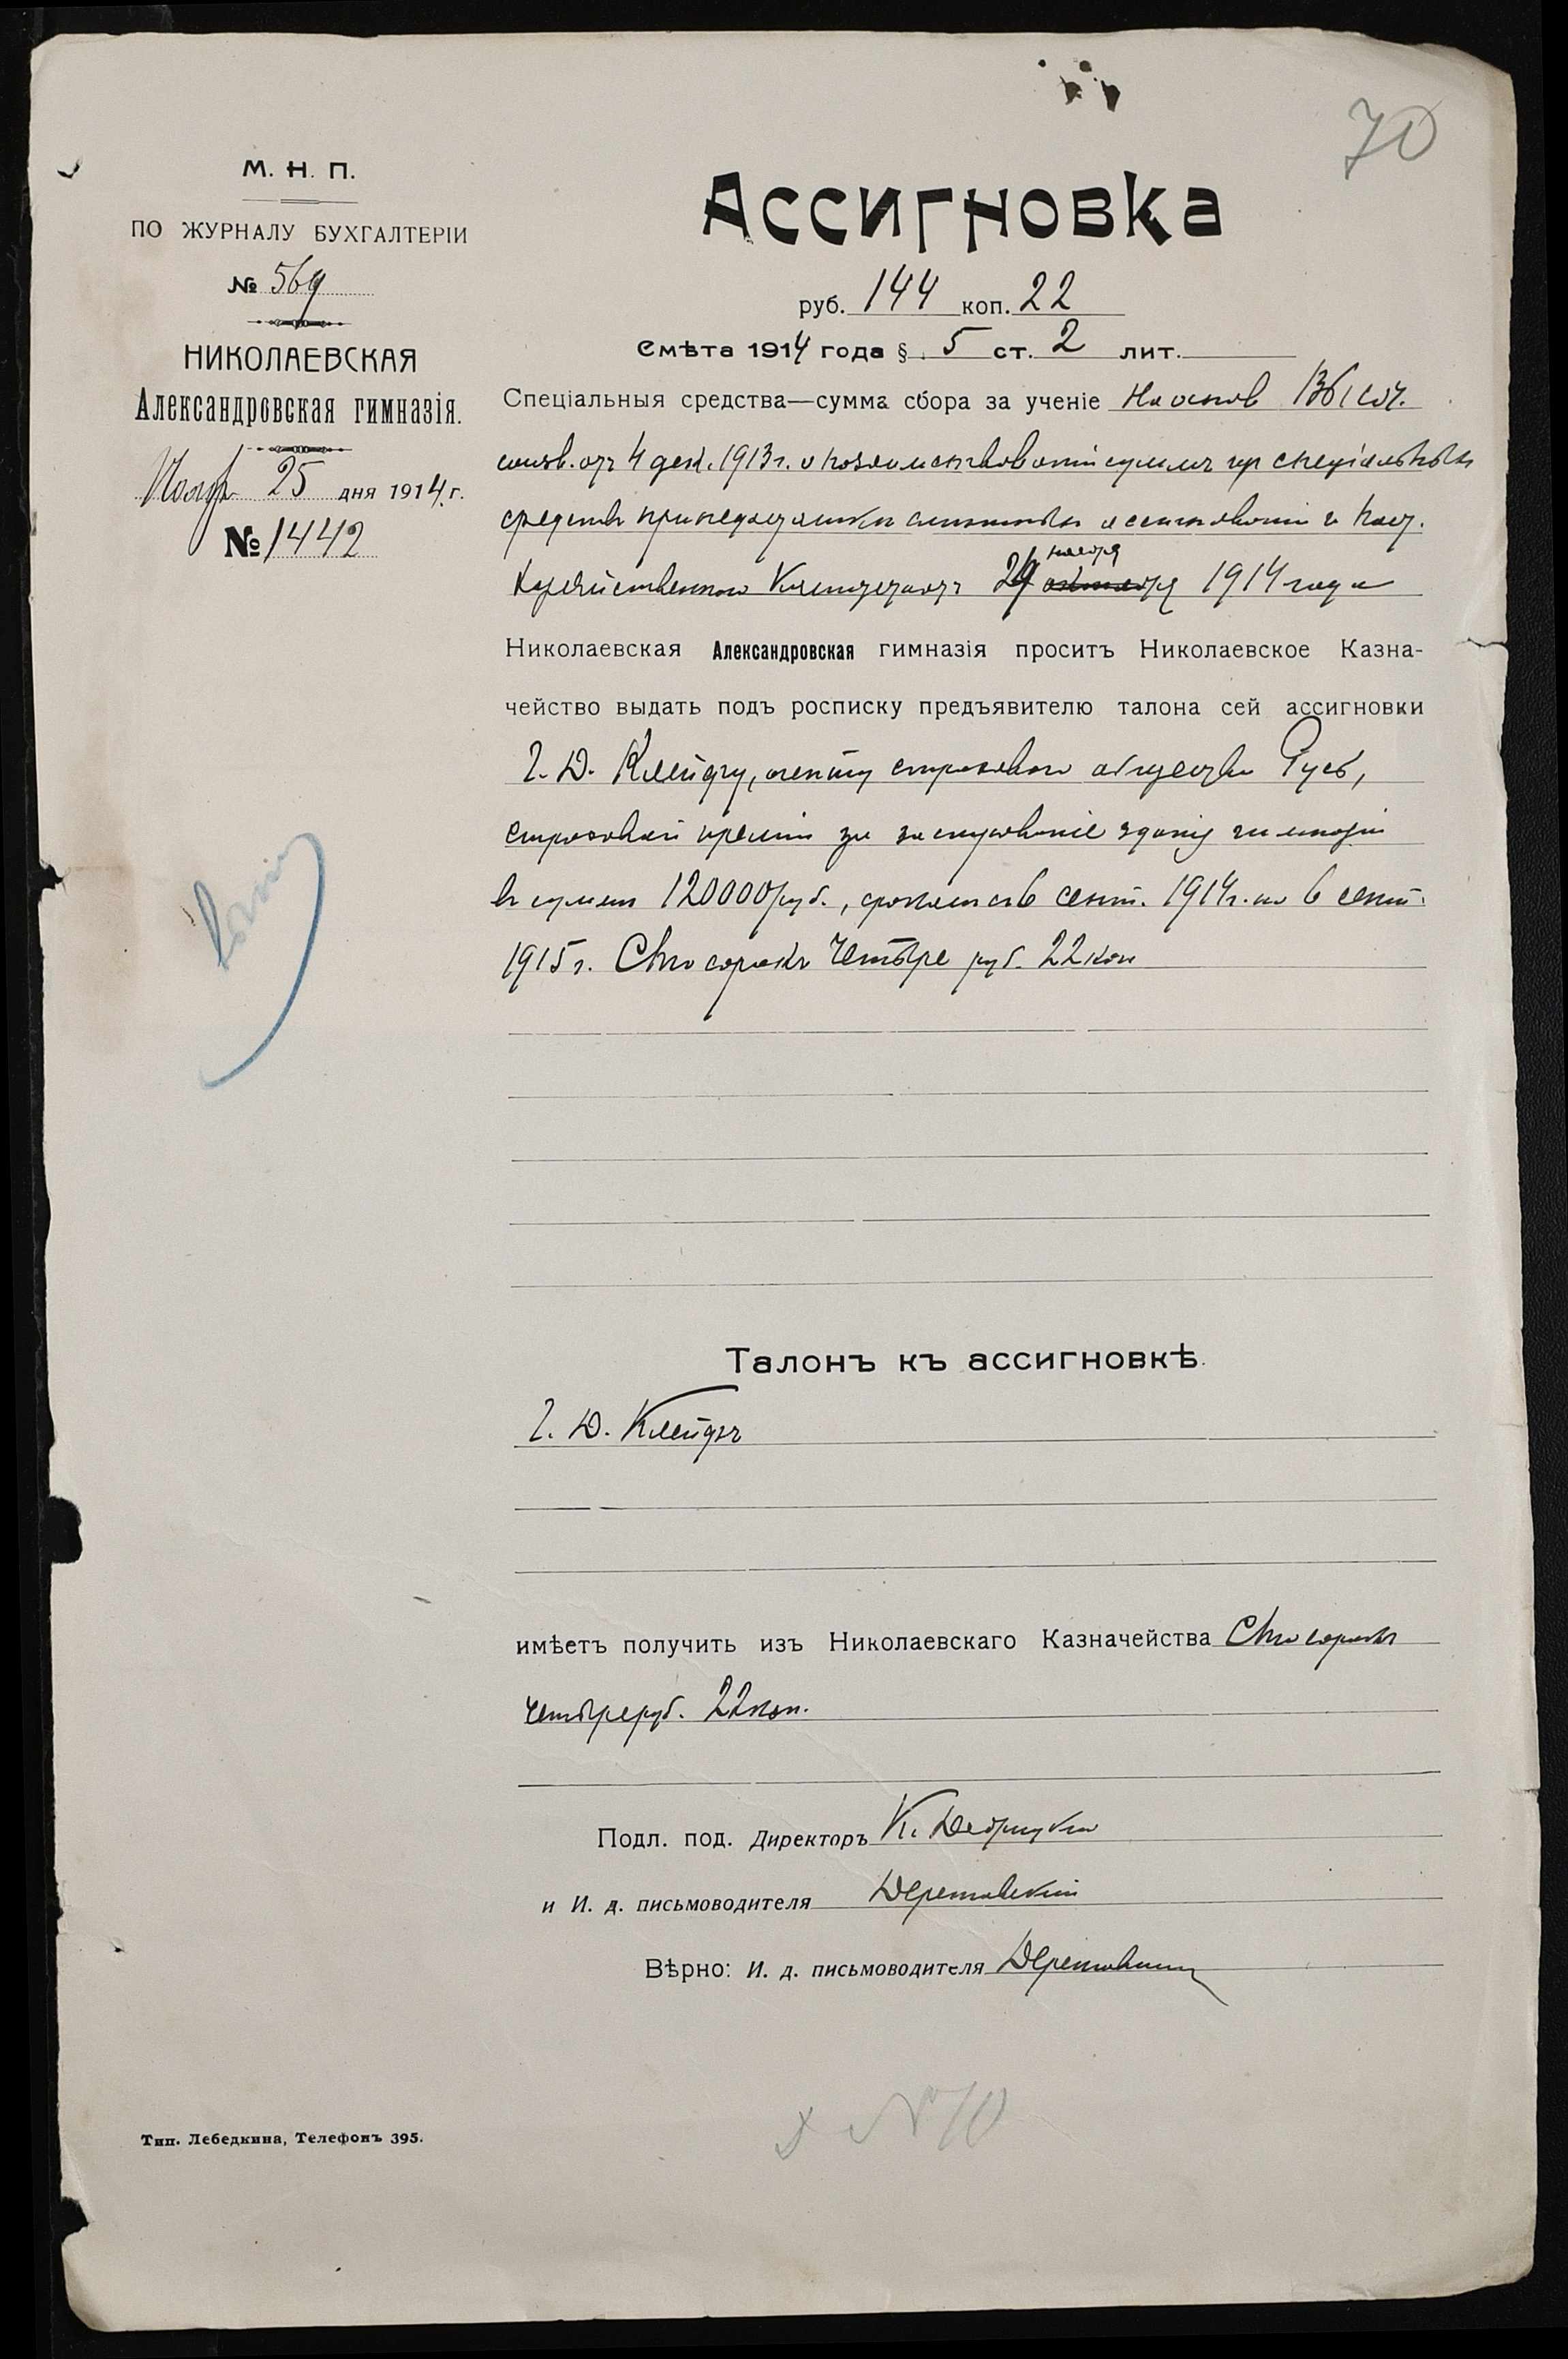 70
М. Н. П.
ПО ЖУРНАЛУ БУХГАЛТЕРІИ
№ 569
НИКОЛАЕВСКАЯ
Александровская гимназія.
Нояб 25 дня 1914 г.
№ 1442
Ассигновка
руб. 144 коп. 22
Смѣта 1914 года § 5 ст. 2 лит.
Спеціальныя средства—сумма сбора за ученіе На основ
отъ 4 дек. 1913 г. о позаимствованіи суммъ изъ спеціальныхъ
средствъ при недостатки ассигнованій и
Хозяйственнаго Комитета отъ 24 ноября 1914 года
Николаевская Александровская гимназія проситъ Николаевское Казна-
чейство выдать подъ росписку предъявителю талона сей ассигновки
Г. Д. Клейдзу, агенту страхового общества Русь,
страховой преміи за застрахованіе зданія гимназіи
въ суммѣ 120000 руб., срокомъ съ 6 сент. 1914 г. по 6 сент.
1915 г. Сто сорокъ четыре руб. 22 коп
Талонъ къ ассигновкѣ.
Г. Д. Клейдзъ
имѣетъ получить изъ Николаевскаго Казначейства Сто сорокъ
четыре руб. 22 коп.
Подл. под. Директоръ К.
и И. д. письмоводителя
Вѣрно: И. д. письмоводителя
№ 70
Тип. Лебедкина, Телефонъ 395.